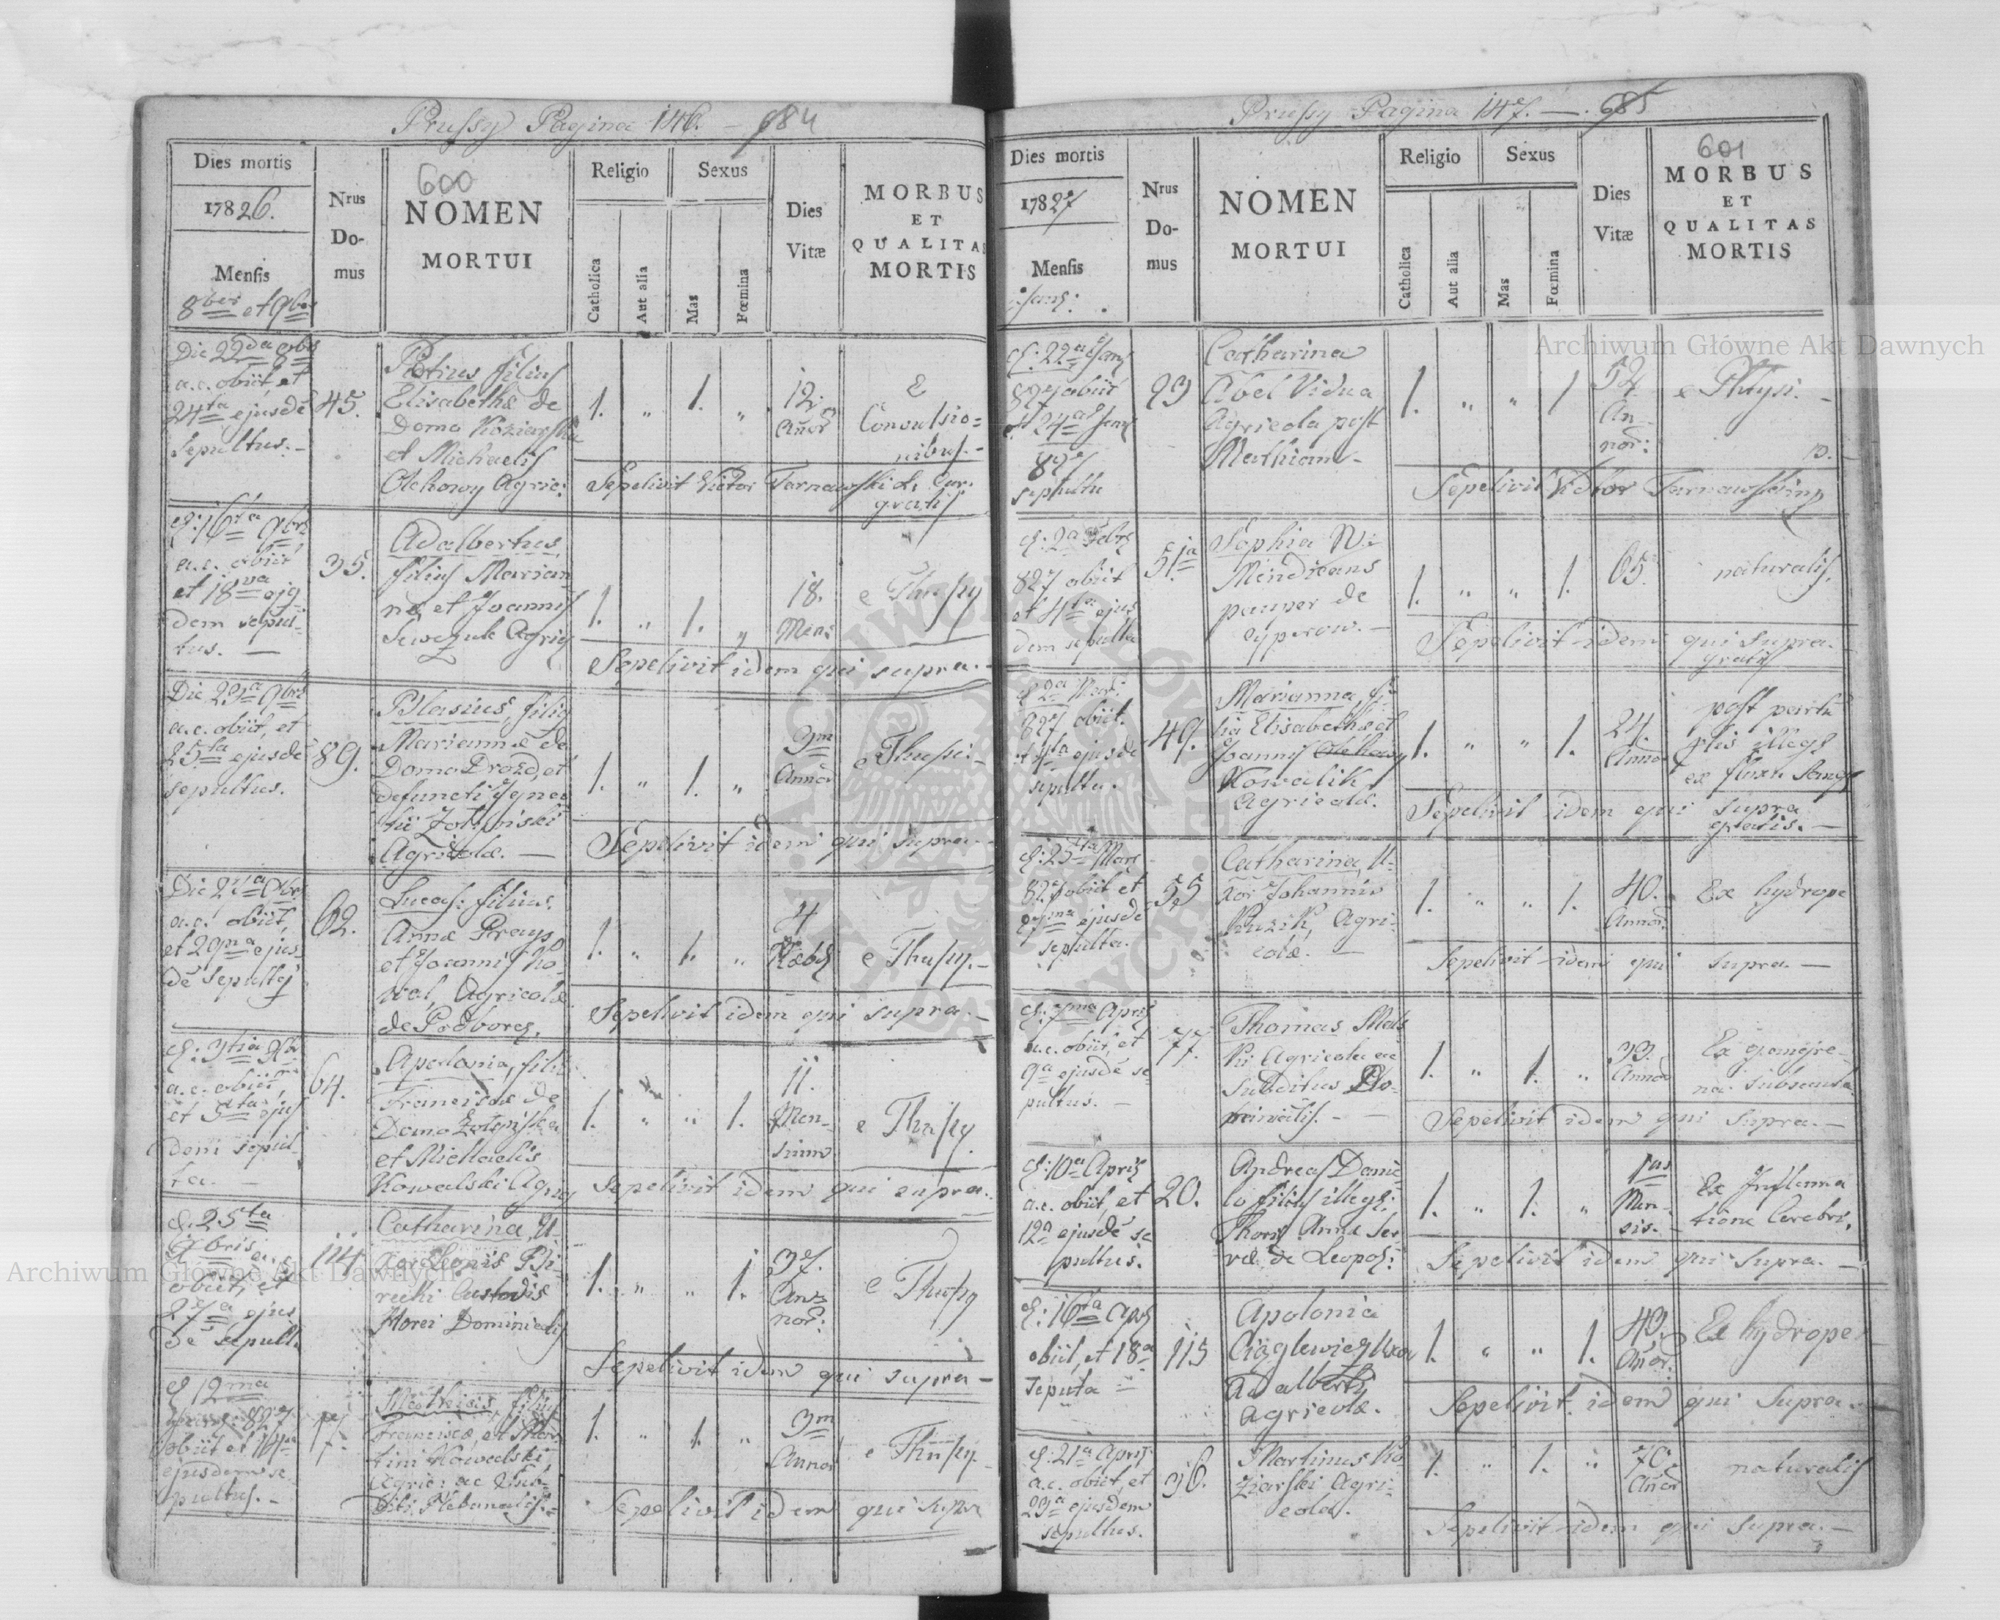 Prussy Pagina 146. — 684
Dies mortis
1826.
Mensis
8ber et 9bris
Nrus
Do-
mus
600
NOMEN
MORTUI
Religio
Catholica
Aut alia
Sexus
Mas
Fœmina
Dies
Vitæ
MORBUS
ET
QUALITAS
MORTIS
Die 22da 8bris
a.c. obiit et
24ta ejusdē
sepultus. -
45.
filius
Elisabethæ de
Domo Koziarska
et Michaelis
Olchowy Agric:
1. „ 1. „
12.
Añor
E
Convulsio=
nibus. -
Sepelivit Victor Tarnawski L. Cur.
gratis
d. 16ta 9bris
a.c. obiit
et 18va ejq
dem sepul-
tus. —
35.
Adalbertus,
filius Marian
næ et Joannis
Szewczuk Agric
1. „ 1. „
18.
Mens
e Thussy
Sepelivit idem qui supra. -
Die 23a 9bris
a.c. obiit, et
25ta ejusdē
sepultus.
89.
Blasius, filiq
Mariannæ de
Domo Drozd, et
defuncti Igna
tii
Agricolæ. —
1. „ 1. „
3m
Annor
e Thussi. -
Sepelivit idem qui supra -
Die 27a 9bris
a.c. obiit,
et 29na ejus-
dē sepultq
62.
Lucas filius
Annæ
et Joannis Ko-
wal, Agricolæ
de Podborce.
1. „ 1. „
4
Hebd
e Thussy. -
Sepelivit idem qui supra. -
d. 3tia Xbr
a.c. obiit,
et 5ta ejus
dem sepul-
ta. -
64.
Apolonia, filia
Franciscæ de
Domo
et Michaelis
Kowalski Agric
1. „ „ 1.
11.
Men-
sium
e Thussy.
Sepelivit idem qui supra.
d. 25ta
Xbris a.c.
obiit, et
27a ejus
dē sepulta
114
Catharina, U-
xor Leonis
Custodis
Horei Dominicalis
1. „ „ 1.
37.
An-
nor:
e Thussy
Sepelivit idem qui supra -
d 12ma
827
obiit et 14ta
ejusdem se
pultus. -
Mathias filius
Franciscæ, et Mar
tini Kowalski,
Agric: ac
Plebanalis. -
1. „ 1. „
3m
Annor
e Thussy. -
Sepelivit idem qui supra
Prussy Pagina 147. — 685
Dies mortis
1827
Mensis
Jany:
Nrus
Do-
mus
NOMEN
MORTUI
Religio
Catholica
Aut alia
Sexus
Mas
Fœmina
Dies
Vitæ
601
MORBUS
ET
QUALITAS
MORTIS
d: 22a Jany
827 obiit
et 24a Jany
827
sepulta
93
Catharina
Abel Vidua
Agricola post
Mathiam -
1. „ „ 1
52
An-
nor:
e Phtysi. -
Sepelivit Victor Tarnawski
d. 2a Febry
827 obiit
et 4ta ejus
dem sepulta
51
Sophia
Mendicans
pauper de
Cyperow. —
1. „ „ 1.
65.
naturalis,
Sepelivit idem qui supra.
gratis
d 2a
827 obiit.
et 4ta ejusdē
sepulta.
49.
Marianna, fi-
lia Elisabethæ et
Joannis
Kowalik
Agricolæ.
1. „ „ 1.
24.
Annor
post partū
ex fluxu
Sepelivit idem qui supra
gratis. —
d. 25ta Mart
827 obiit et
27ma ejusdē
sepulta.
55
Catharina, U-
xor Johannis
Kuzik, Agri-
colæ. —
1. „ „ 1.
40.
Annor
Ex hydrope
Sepelivit idem qui supra. —
d. 7ma April
a.c. obiit, et
9a ejusdē se
pultus. -
77.
Thomas
Agricola ac
subditus
1. „ 1. „
33.
Annor
Ex gangre-
na
Sepelivit idem qui supra. —
d. 10a April
a.c. obiit, et
12a ejusdē se
pultus.
20.
Andreas
filius illegi:
Anna Ser-
væ de Leopol:
1. „ 1. „
1us
Men-
sis.
Ex Inflama
tione Cerebri,
Sepelivit idem qui supra. —
d. 16ta April
obiit, et 18a
seputa
115
Apolonia
Uxor
Adalberti
Agricolæ.
1. „ „ 1.
43.
Añor
Ex hydrope
Sepelivit idem qui supra.
d. 21a April
a.c. obiit, et
23a ejusdem
sepultus.
36.
Martinus Ko
ziarski Agri-
cola.
1. „ 1. „
70.
Añor
naturalis
Sepelivit idem qui supra. —
Archiwum Główne Akt Dawnych
Archiwum Główne Akt Dawnych
ARCHIWUM GŁÓWNE AKT DAWNYCH